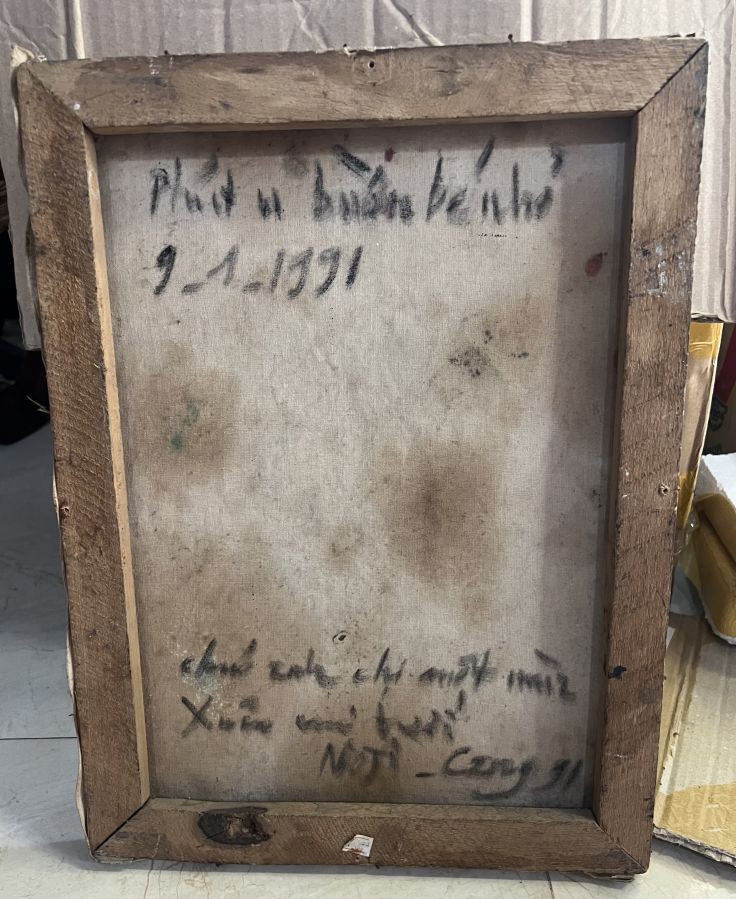 Phút u buồn bé nhỏ
9-1-1991
chúc anh chị một mùa
Xuân vui tươi
91